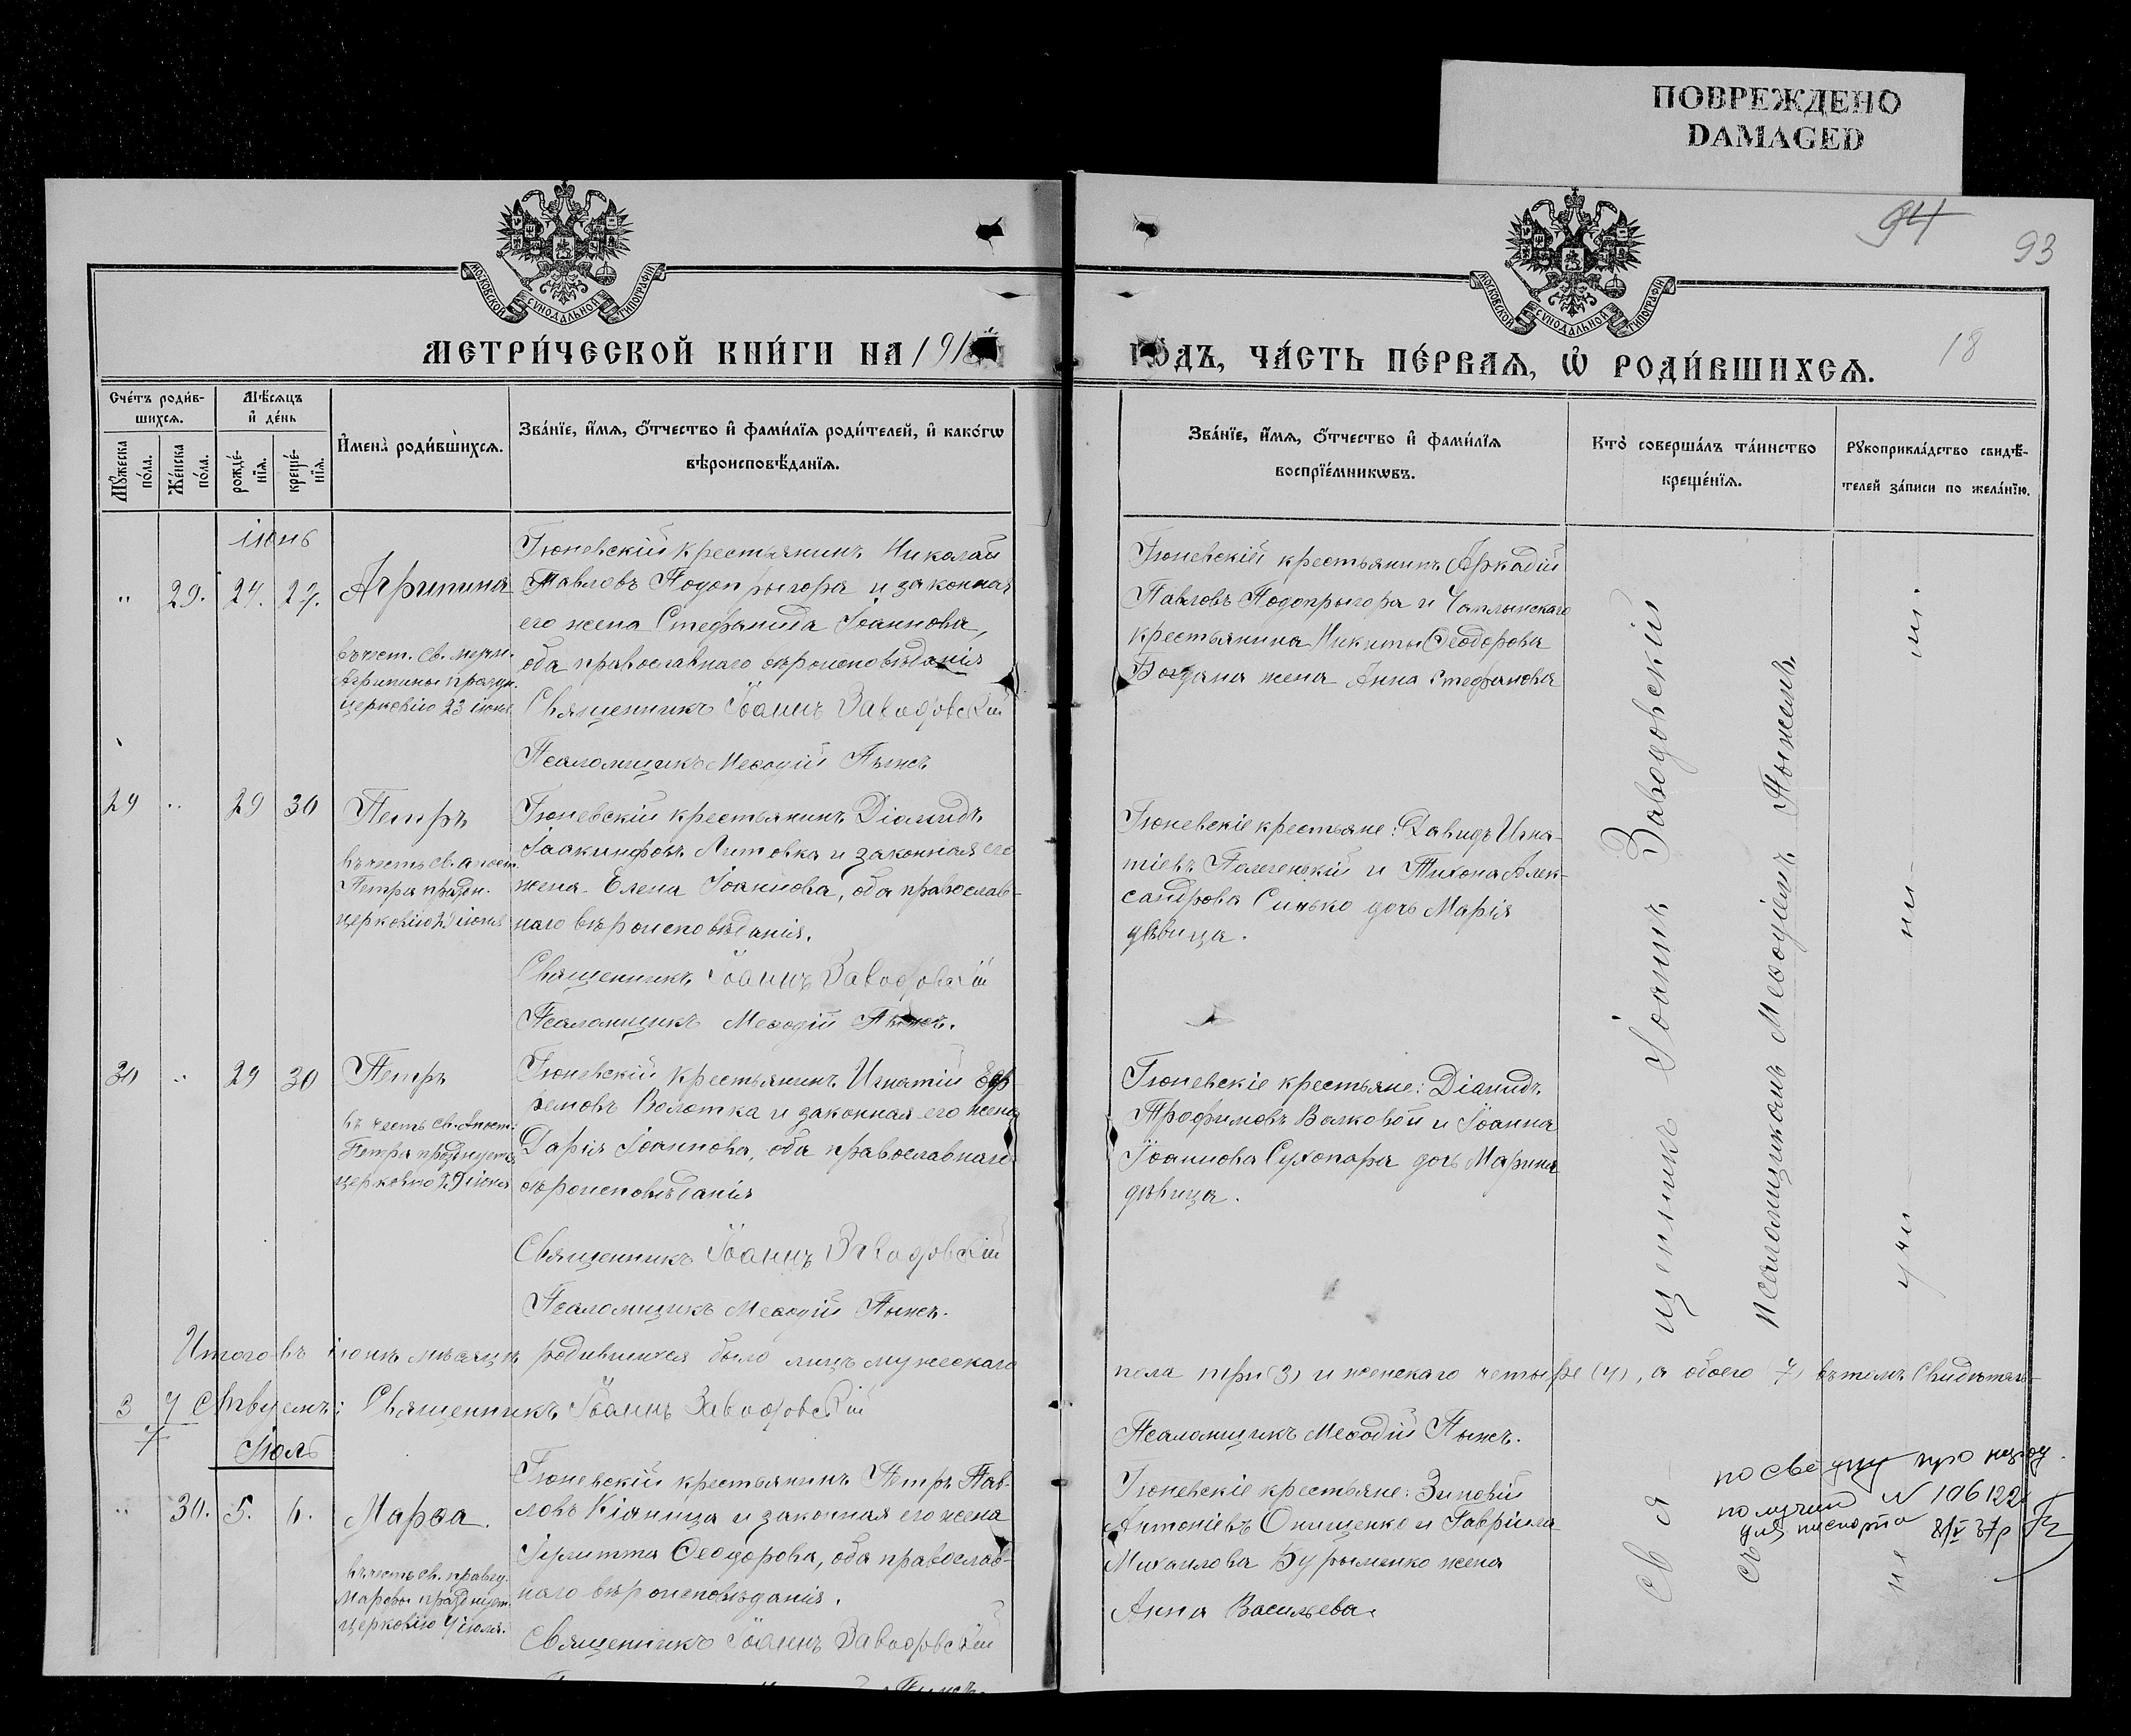 ПОВРЕЖДЕНО
DAMAGED
94
93
18
МОСКОВСКОЙ СУНОДАЛЬНОЙ ТИПОГРАФІИ
МОСКОВСКОЙ СУНОДАЛЬНОЙ ТИПОГРАФІИ
МЕТРИ́ЧЕСКОЙ КНИ́ГИ НА 191
ГО́ДЪ, ЧА́СТЬ ПЕ́РВАЯ, Ѡ РОДИ́ВШИХСЯ.
Сче́тъ роди́в-
шихся.
Мѣ́сяцъ
и҆ де́нь
Му́жеска
по́ла.
Же́нска
по́ла.
рожде́-
нїя.
креще́-
нїя.
И҆мена̀ роди́вшихся.
Зва́нїе, и҆́мя, о҆́тчество и҆ фами́лїя роди́телей, и҆ како́гѡ
вѣроисповѣ́данїя.
Зва́нїе, и҆́мя, о҆́тчество и҆ фами́лїя
воспрїе́мникѡвъ.
Кто̀ соверша́лъ та́инство
креще́нїя.
Рукоприкла́дство свидѣ́-
телей за́писи по жела́нїю.
іюнь
" 29. 24. 27. Агрипина
въ чест. св. мучн.
Агрипины праздн.
церковію 23 іюня
Гюневскій крестьянинъ Николай
Павловъ Подопрыгора и законная
его жена Стефанида Іоаннова,
оба православнаго вѣроисповѣданія
Священникъ Іоаннъ Заводовскій
Псаломщикъ Меѳодій Пыжъ
Гюневскій крестьянинъ Аркадій
Павловъ Подопрыгора и Чаплынскаго
крестьянина Никиты Ѳеодорова
Богдана жена Анна Стефанова
29 " 29 30 Петръ
въ честь св. апост.
Петра праздн.
церковію 29 іюня
Гюневскій крестьянинъ Діамидъ
Іоакинфовъ Литовка и законная его
жена Елена Іоаннова, оба православ-
наго вѣроисповѣданія.
Священникъ Іоаннъ Заводовскій
Псаломщикъ Меѳодій Пыжъ.
Гюневскіе крестьяне: Давидъ Игна-
тіевъ и Тихона Алек-
сандрова Синько дочь Марія
дѣвица.
30 " 29 30 Петръ
въ честь св. Апост.
Петра празднуем.
церковію 29 іюня
Гюневскій крестьянинъ Игнатій Еф-
ремовъ Волотка и законная его жена
Дарія Іоаннова, оба православнаго
вѣроисповѣданія
Священникъ Іоаннъ Заводовскій
Псаломщикъ Меѳодій Пыжъ.
Гюневскіе крестьяне: Діамидъ
Трофимовъ Волковой и Іоанна
Іоаннова Сухопара дочь Марина
дѣвица.
Итого въ іюнѣ мѣсяцѣ родившихся было лицъ мужескаго
пола три (3) и женскаго четыре (4), а обоего 7, въ томъ Свидѣтель-
3 4 ствуемъ: Священникъ Іоаннъ Заводовскій
7
Псаломщикъ Меѳодій Пыжъ.
Іюль
" 30. 5. 6. Марѳа.
въ честь св. правед.
Марѳы празднуем.
церковію 4 іюля.
Гюневскій крестьянинъ Петръ Пав-
ловъ Кіяница и законная его жена
Іулитта Ѳеодорова, оба православ-
наго вѣроисповѣданія.
Священникъ Іоаннъ Заводовскій
Гюневскіе крестьяне: Зиновій
Антоніевъ Онищенко и Гавріила
Михаилова Бурыменко жена
Анна Васильева.
Священникъ Іоаннъ Заводовскій
съ псаломщикомъ Меѳодіемъ Пыжемъ.
посве про
получив N 106122
для паспорта